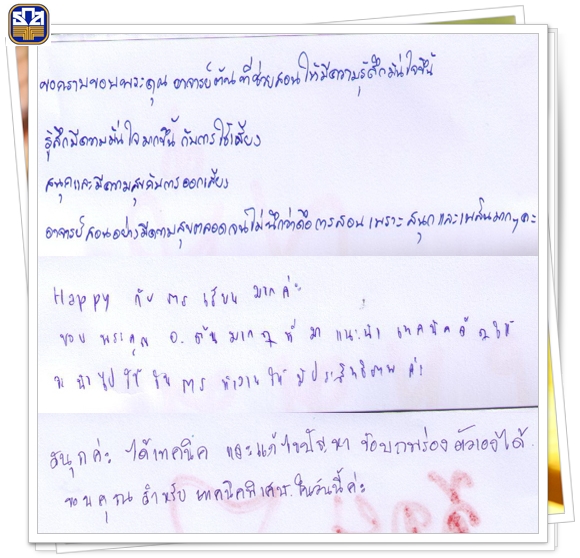 ขอกราบขอบพระคุณ อาจารย์ต้น ที่ช่วยสอน ให้มีความรู้สึกมั่นใจขึ้น
รู้สึกมีความมั่นใจมากขึ้น กับการใช้เสียง
สนุกและมีความสุขกับการออกเสียง
อาจารย์สอนอย่างมีความสุขตลอดจนไม่นึกว่าคือการสอน เพราะสนุกและเพลินมากๆค่ะ
Happy กับ การ เรียน มากค่ะ
ขอบ พระคุณ อ. ต้น มากๆ ที่ มา แนะนำ เทคนิคดีๆให้
จะ นำ ไป ใช้ ใน การ ทำงาน ให้ มีประสิทธิภาพ ค่ะ
สนุกค่ะ ได้เทคนิค และแก้ไขปัญหา ข้อบกพร่อง ตัวเองได้
ขอบคุณ สำหรับ เทคนิคพิเศษ ในวันนี้ค่ะ